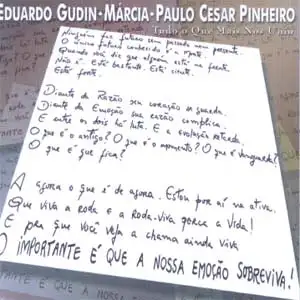 EDUARDO GUDIN·MÁRCIA·PAULO CESAR PINHEIRO
Tudo o Que Mais Nos Uniu
Ninguém faz futuro sem passado nem presente.
O único futuro conhecido é a morte.
Quando se diz que alguém está na frente.
Não é. Está bastante. Está
Está frente.
Diante da Razão seu coração se guarda.
Diante da Emoção sua razão complica.
E entre os dois há luta. E a evolução retarda.
O que é o antigo? O que é o momento? O que é vanguarda?
O que é que fica?
A agora o que é de agora. Estou por aí na ativa.
Que viva a roda e a roda-viva porca a vida!
E pra que você veja a chama ainda viva
O IMPORTANTE É QUE A NOSSA EMOÇÃO SOBREVIVA!